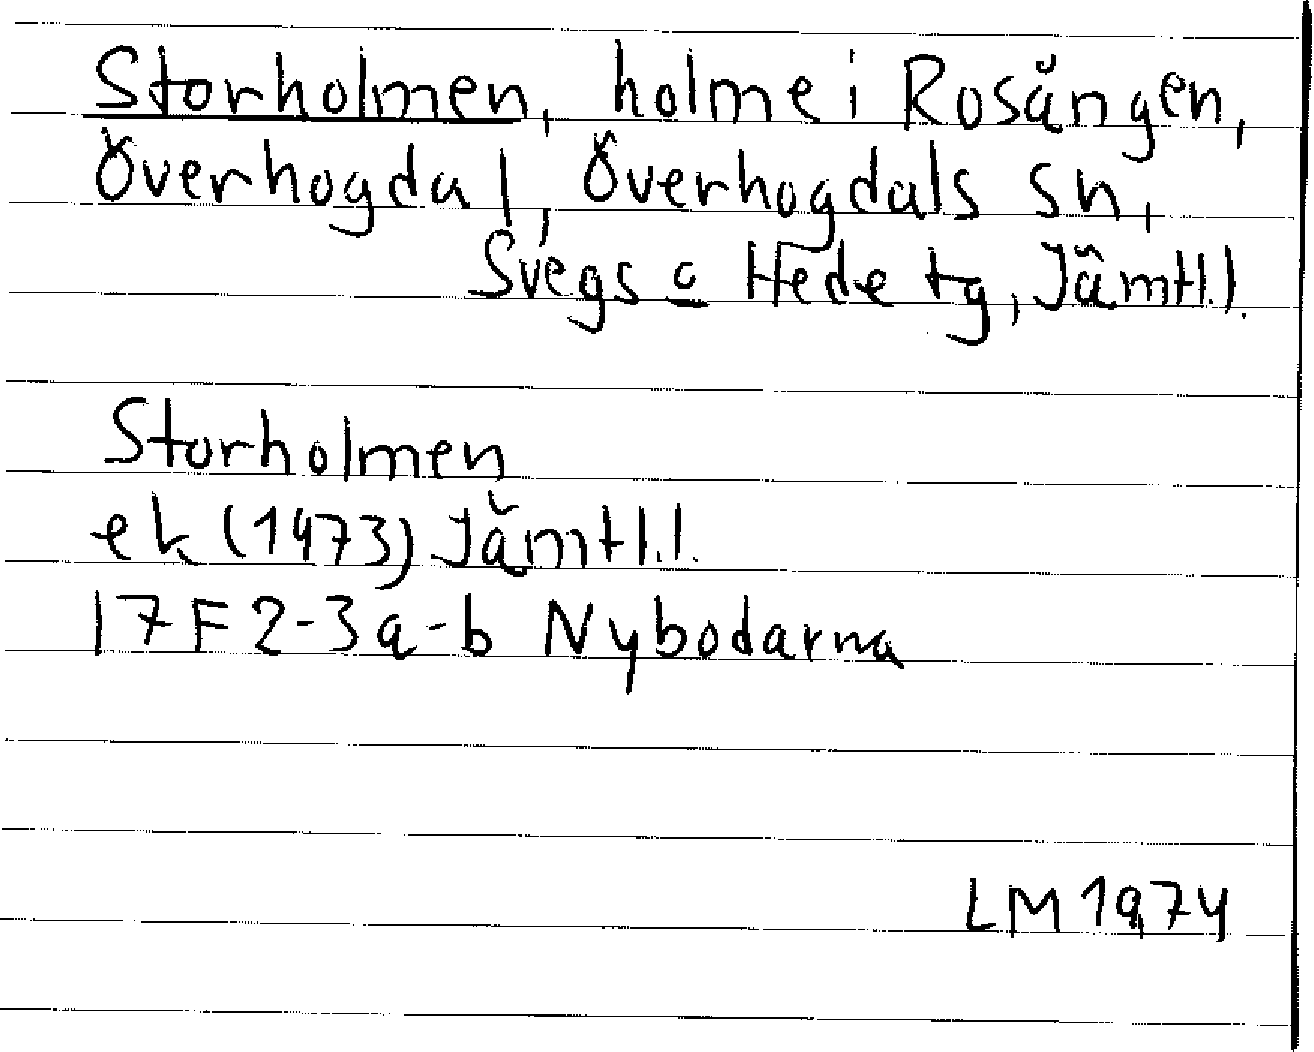 Storholmen, holme i Rosängen,
Överhogdal, Överhogdals sn,
Svegs o Hede tg, Jämtl.l.
Storholmen
ek (1973) Jämtl.l.
17F 2-3a-b Nybodarna
LM 1974